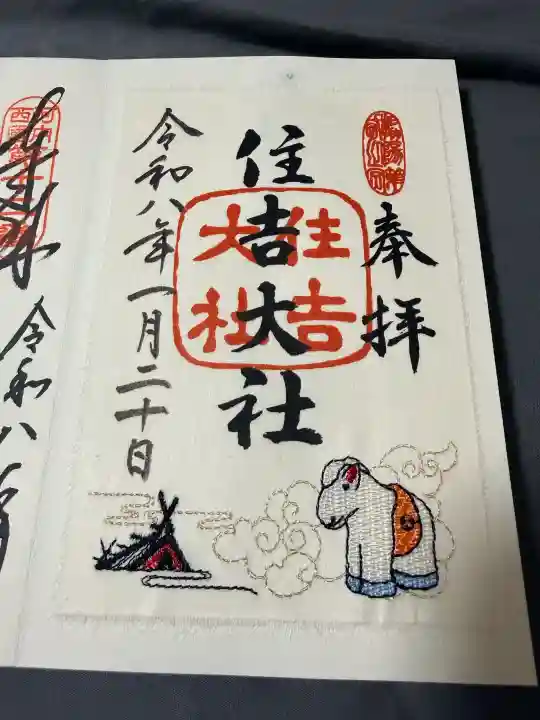 奉拝
住吉大社
住吉
大社
令和八年一月二十日
令和八年